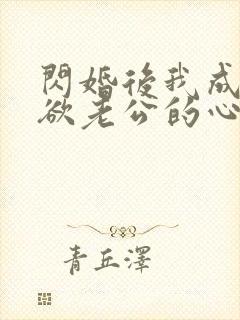 閃婚後我成
欲老公的心
青丘澤